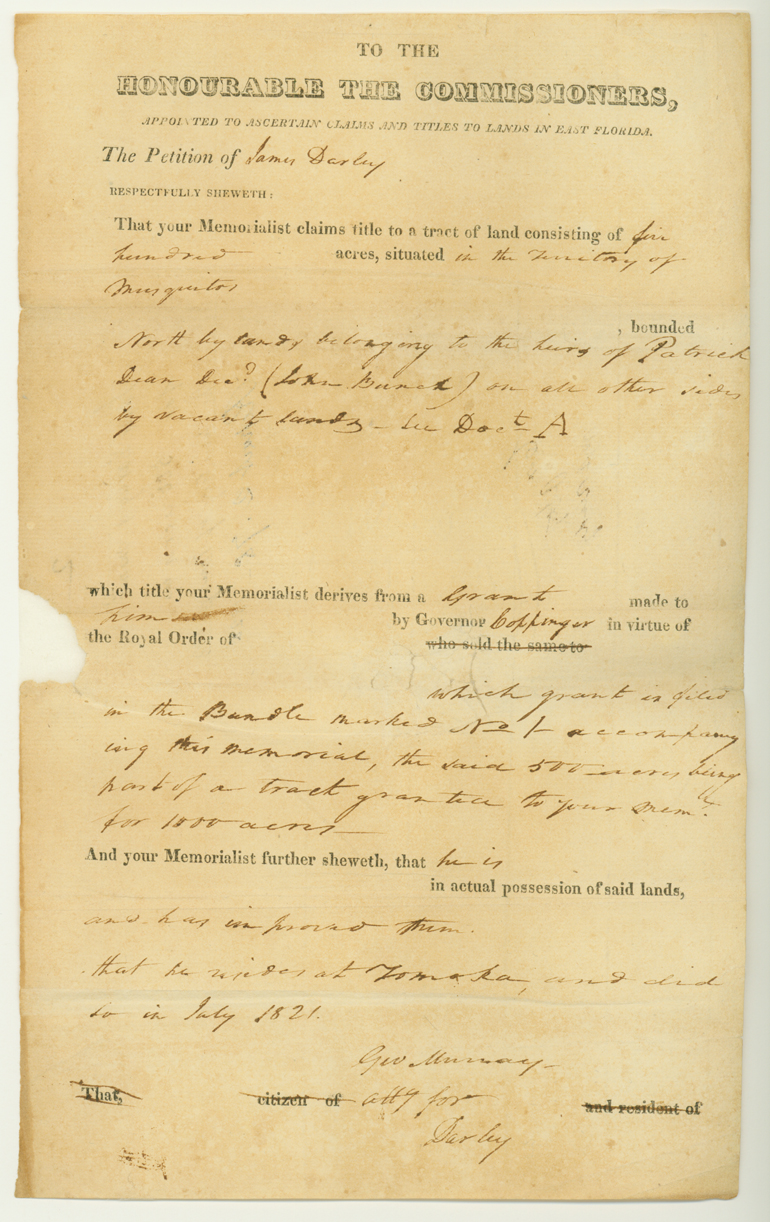 TO THE
HONOURABLE THE COMMISSIONERS,
APPOINTED TO ASCERTAIN CLAIMS AND TITLES TO LANDS IN EAST FLORIDA.
The Petition of James Darley
RESPECTFULLY SHEWETH:
That your Memorialist claims title to a tract of land consisting of five
hundred acres, situated in the Territory of
Musquitos
, bounded
North by lands belonging to the heirs of Patrick
Dean Decd (John Bunch) on all other sides
by vacant lands - See Doct A
which title your Memorialist derives from a Grant made to
him by Governor Coppinger in virtue of
the Royal Order of who sold the same to
which grant is filed
in the Bundle marked No 1 - accompany
ing this memorial, the said 500 acres being
part of a tract granted to your Meml.
for 1000 acres
And your Memorialist further sheweth, that he is
in actual possession of said lands,
and has improved them.
that he resides at Tomoka, and did
so in July 1821.
Geo Murray
That, citizen of atty for and resident of
Darley